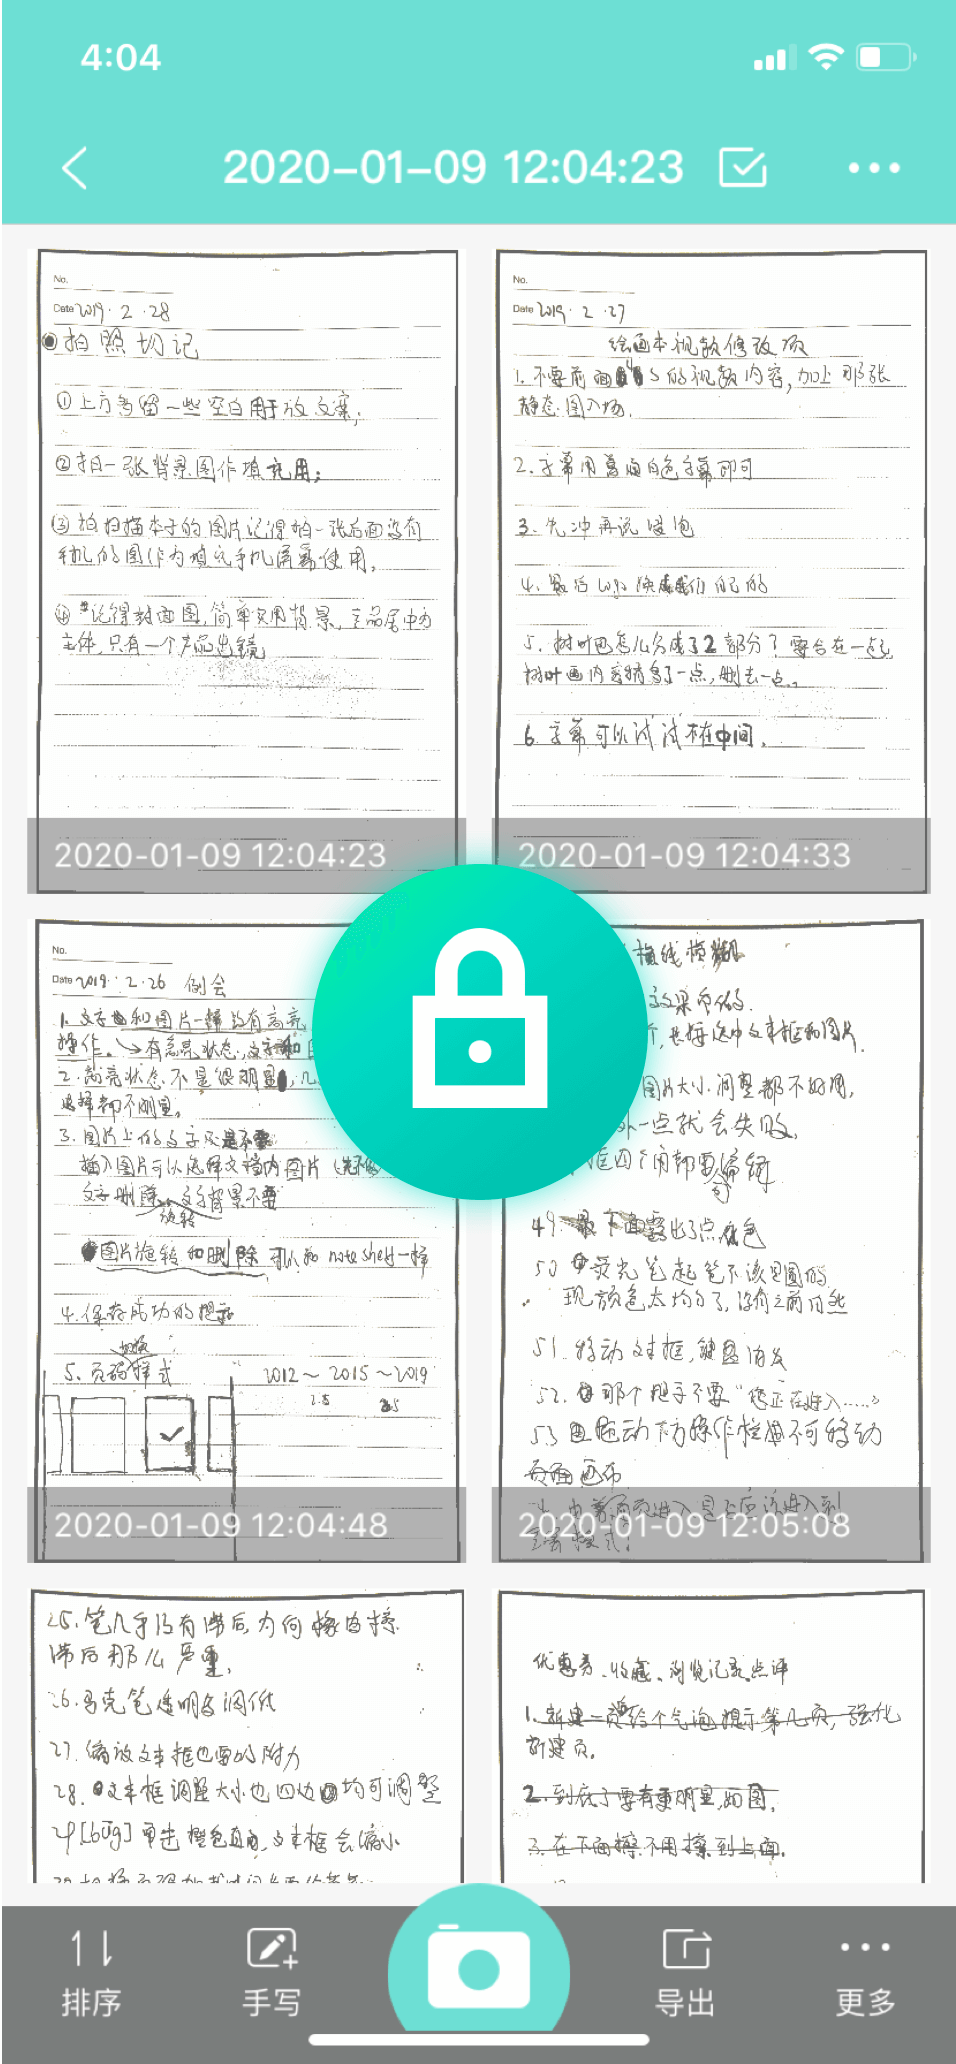 4:04
2020-01-09 12:04:23
No.
Date 2019.2.28
拍照切记
①上方多留一些空白用于放文案,
②拍一张背景图作填充用;
③拍扫描本子的图片记得拍一张后面没有
手机的图作为填充手机屏幕使用。
④记得封面图,简单实用背景,产品居中为
主体,只有一个产品出镜
2020-01-09 12:04:23
No.
Date 2019.2.27
绘画本视频修改版
1.不要前面 s的视频内容,加上那张
静态图入场.
2.字幕用 白色字幕即可
3.先冲再说
4.最后logo换成我们自己的
5.树叶 怎么分成了2部分?要合在一起,
树叶画内容稍多了一点,删去一点。
6.字幕可以试试不在中间.
2020-01-09 12:04:33
No.
Date 2019.2.26 例会
1.文字也和图片一样 有高亮
操作.→有高亮状态,文字和
2.高亮状态不是很明显,
选择都不明显.
3.图片上的文字 不要
插入图片可以选择文档内图片
文字删除,文字背景不要
旋转
图片旋转和删除可以和noteshelf一样
4.保存成功的提示
切换
5.页码样式
2012～2015～2019
2.5
2020-01-09 12:04:48
横线模糊
效果
,长按选中文本框和图片.
图片大小.调整都不好用,
一点就会失败.
框四个角都要编辑
49.最下面露出了点底色
50 荧光笔起笔不该是圆的
现颜色太均匀了,
51.移动文本框,键盘
52. 那个提示不要“您正在进入.....”
53 拖动下方操作栏 不可移动
页面画布
2020-01-09 12:05:08
25.笔几乎没有滞后,为何橡皮擦
滞后那么严重.
26.马克笔透明度调低
27.缩放文本框也要吸附力
28.文本框调整大小也四边均可调整
29[bug]单击 文本框会缩小
优惠券、收藏、浏览记录、点评
1.新建一页给个气泡提示第几页,强化
新建页.
2.到底了要有更明显,如图.
3.在下面擦不用擦到上面.
排序
手写
导出
更多